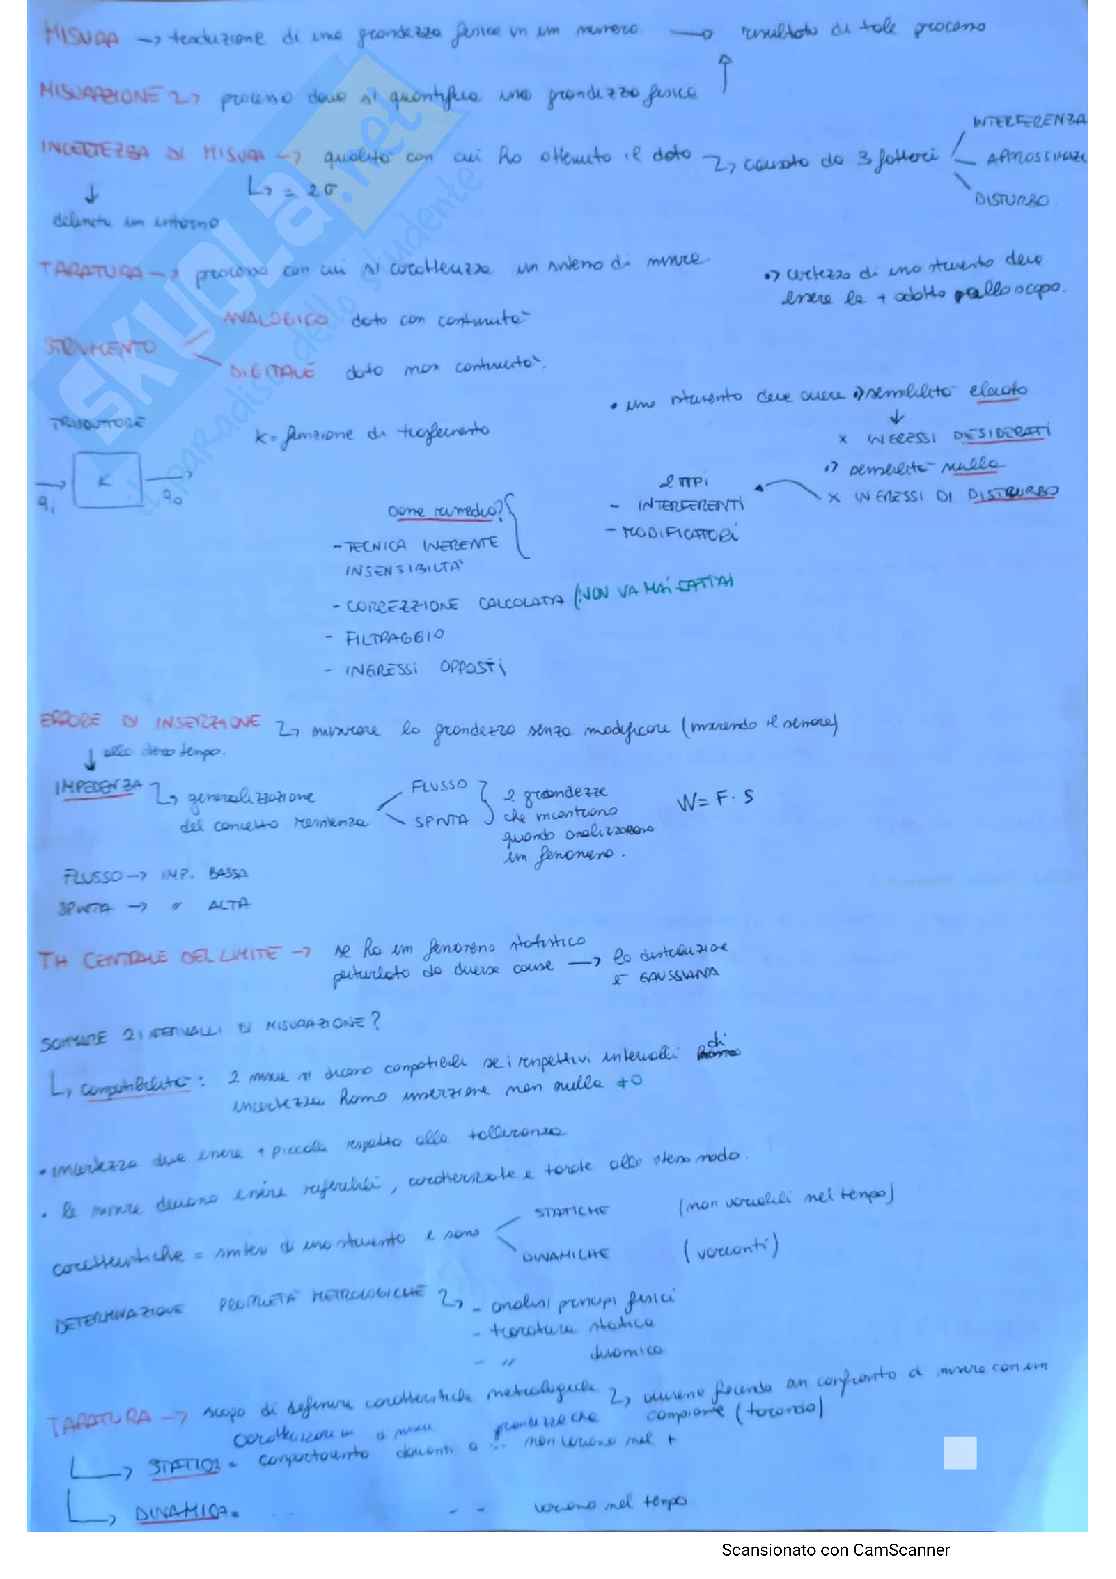 MISURA → traduzione di una grandezza fisica in un numero → risultato di tale processo
MISURAZIONE → processo dove si quantifica una grandezza fisica
INCERTEZZA DI MISURA → qualità con cui ho ottenuto il dato → causata da 3 fattori
INTERFERENZA
APPROSSIMAZI
DISTURBO
↳ = 2σ
delimita un intorno
TARATURA → processo con cui si caratterizza un sistema di misura
•) certezza di uno strumento deve
essere la + adatta allo scopo.
STRUMENTO
ANALOGICO dato con continuità
DIGITALE dato non continuità.
TRASDUTTORE
K
q₁
q₀
K = funzione di trasferimento
• uno strumento deve avere •) sensibilità elevata
x INGRESSI DESIDERATI
•) sensibilità nulla
x INGRESSI DI DISTURBO
2 TIPI
- INTERFERENTI
- MODIFICATORI
come rimedio?
- TECNICA INERENTE
INSENSIBILTÀ
- CORREZZIONE CALCOLATA (NON VA MAI FATTA)
- FILTRAGGIO
- INGRESSI OPPOSTI
ERRORE DI INSERZIONE → misurare la grandezza senza modificare (inserendo il sensore)
↓ allo stesso tempo.
IMPEDENZA → generalizzazione
del concetto resistenza
FLUSSO
SPINTA
2 grandezze
che incontriamo
quando analizziamo
un fenomeno.
W = F · S
FLUSSO → IMP. BASSA
SPINTA → " ALTA
TH CENTRALE DEL LIMITE → se ho un fenomeno statistico
perturbato da diverse cause → la distribuzione
è GAUSSIANA
SOMMARE 2 INTERVALLI DI MISURAZIONE?
↳ compatibilità: 2 misure si dicono compatibili se i rispettivi intervalli di
incertezza hanno inserzione non nulla ≠0
• incertezza deve essere + piccola rispetto alla tolleranza
• le misure devono essere riferibili, caratterizzate e tarate allo stesso modo.
caratteristiche = sintesi di uno strumento e sono
STATICHE (non variabili nel tempo)
DINAMICHE (varianti)
DETERMINAZIONE PROPRIETÀ METROLOGICHE → - analisi principi fisici
- taratura statica
- " dinamica
TARATURA → scopo di definire caratteristiche metrologiche → avviene facendo un confronto di misure con un
campione (tarando)
grandezze che
↳ STATICA = comportamento davanti a ... non variano nel t
↳ DINAMICA = - - variano nel tempo
SKUOLA.net
il paradiso dello studente
Scansionato con CamScanner